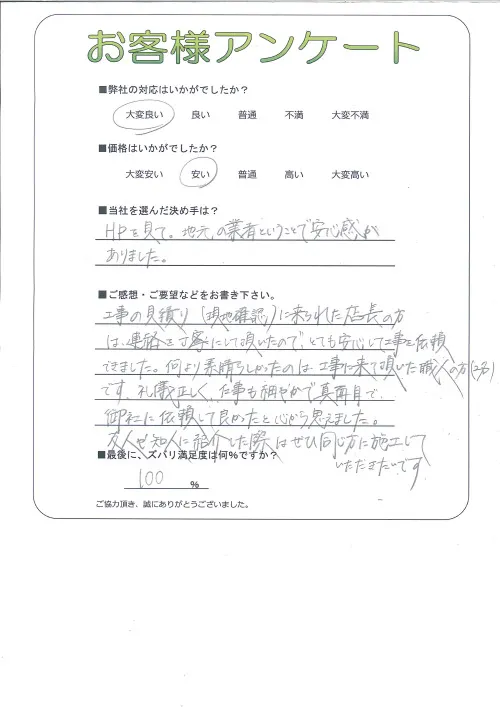 お客様アンケート
■弊社の対応はいかがでしたか？
大変良い 良い 普通 不満 大変不満
■価格はいかがでしたか？
大変安い 安い 普通 高い 大変高い
■当社を選んだ決め手は？
HPを見て。地元の業者ということで安心感が
ありました。
■ご感想・ご要望などをお書き下さい。
工事の見積り（現地確認）に来られた店長の方
は、連絡を丁寧にして頂いたので、とても安心して工事を依頼
できました。何より素晴らしかったのは、工事に来て頂いた職人の方（2名）
です。礼儀正しく、仕事も細やかで真面目で、
御社に依頼して良かったと心から思えました。
友人や知人に紹介した際はぜひ同じ方に施工して
いただきたいです
■最後に、ズバリ満足度は何％ですか？
100 ％
ご協力頂き、誠にありがとうございました。